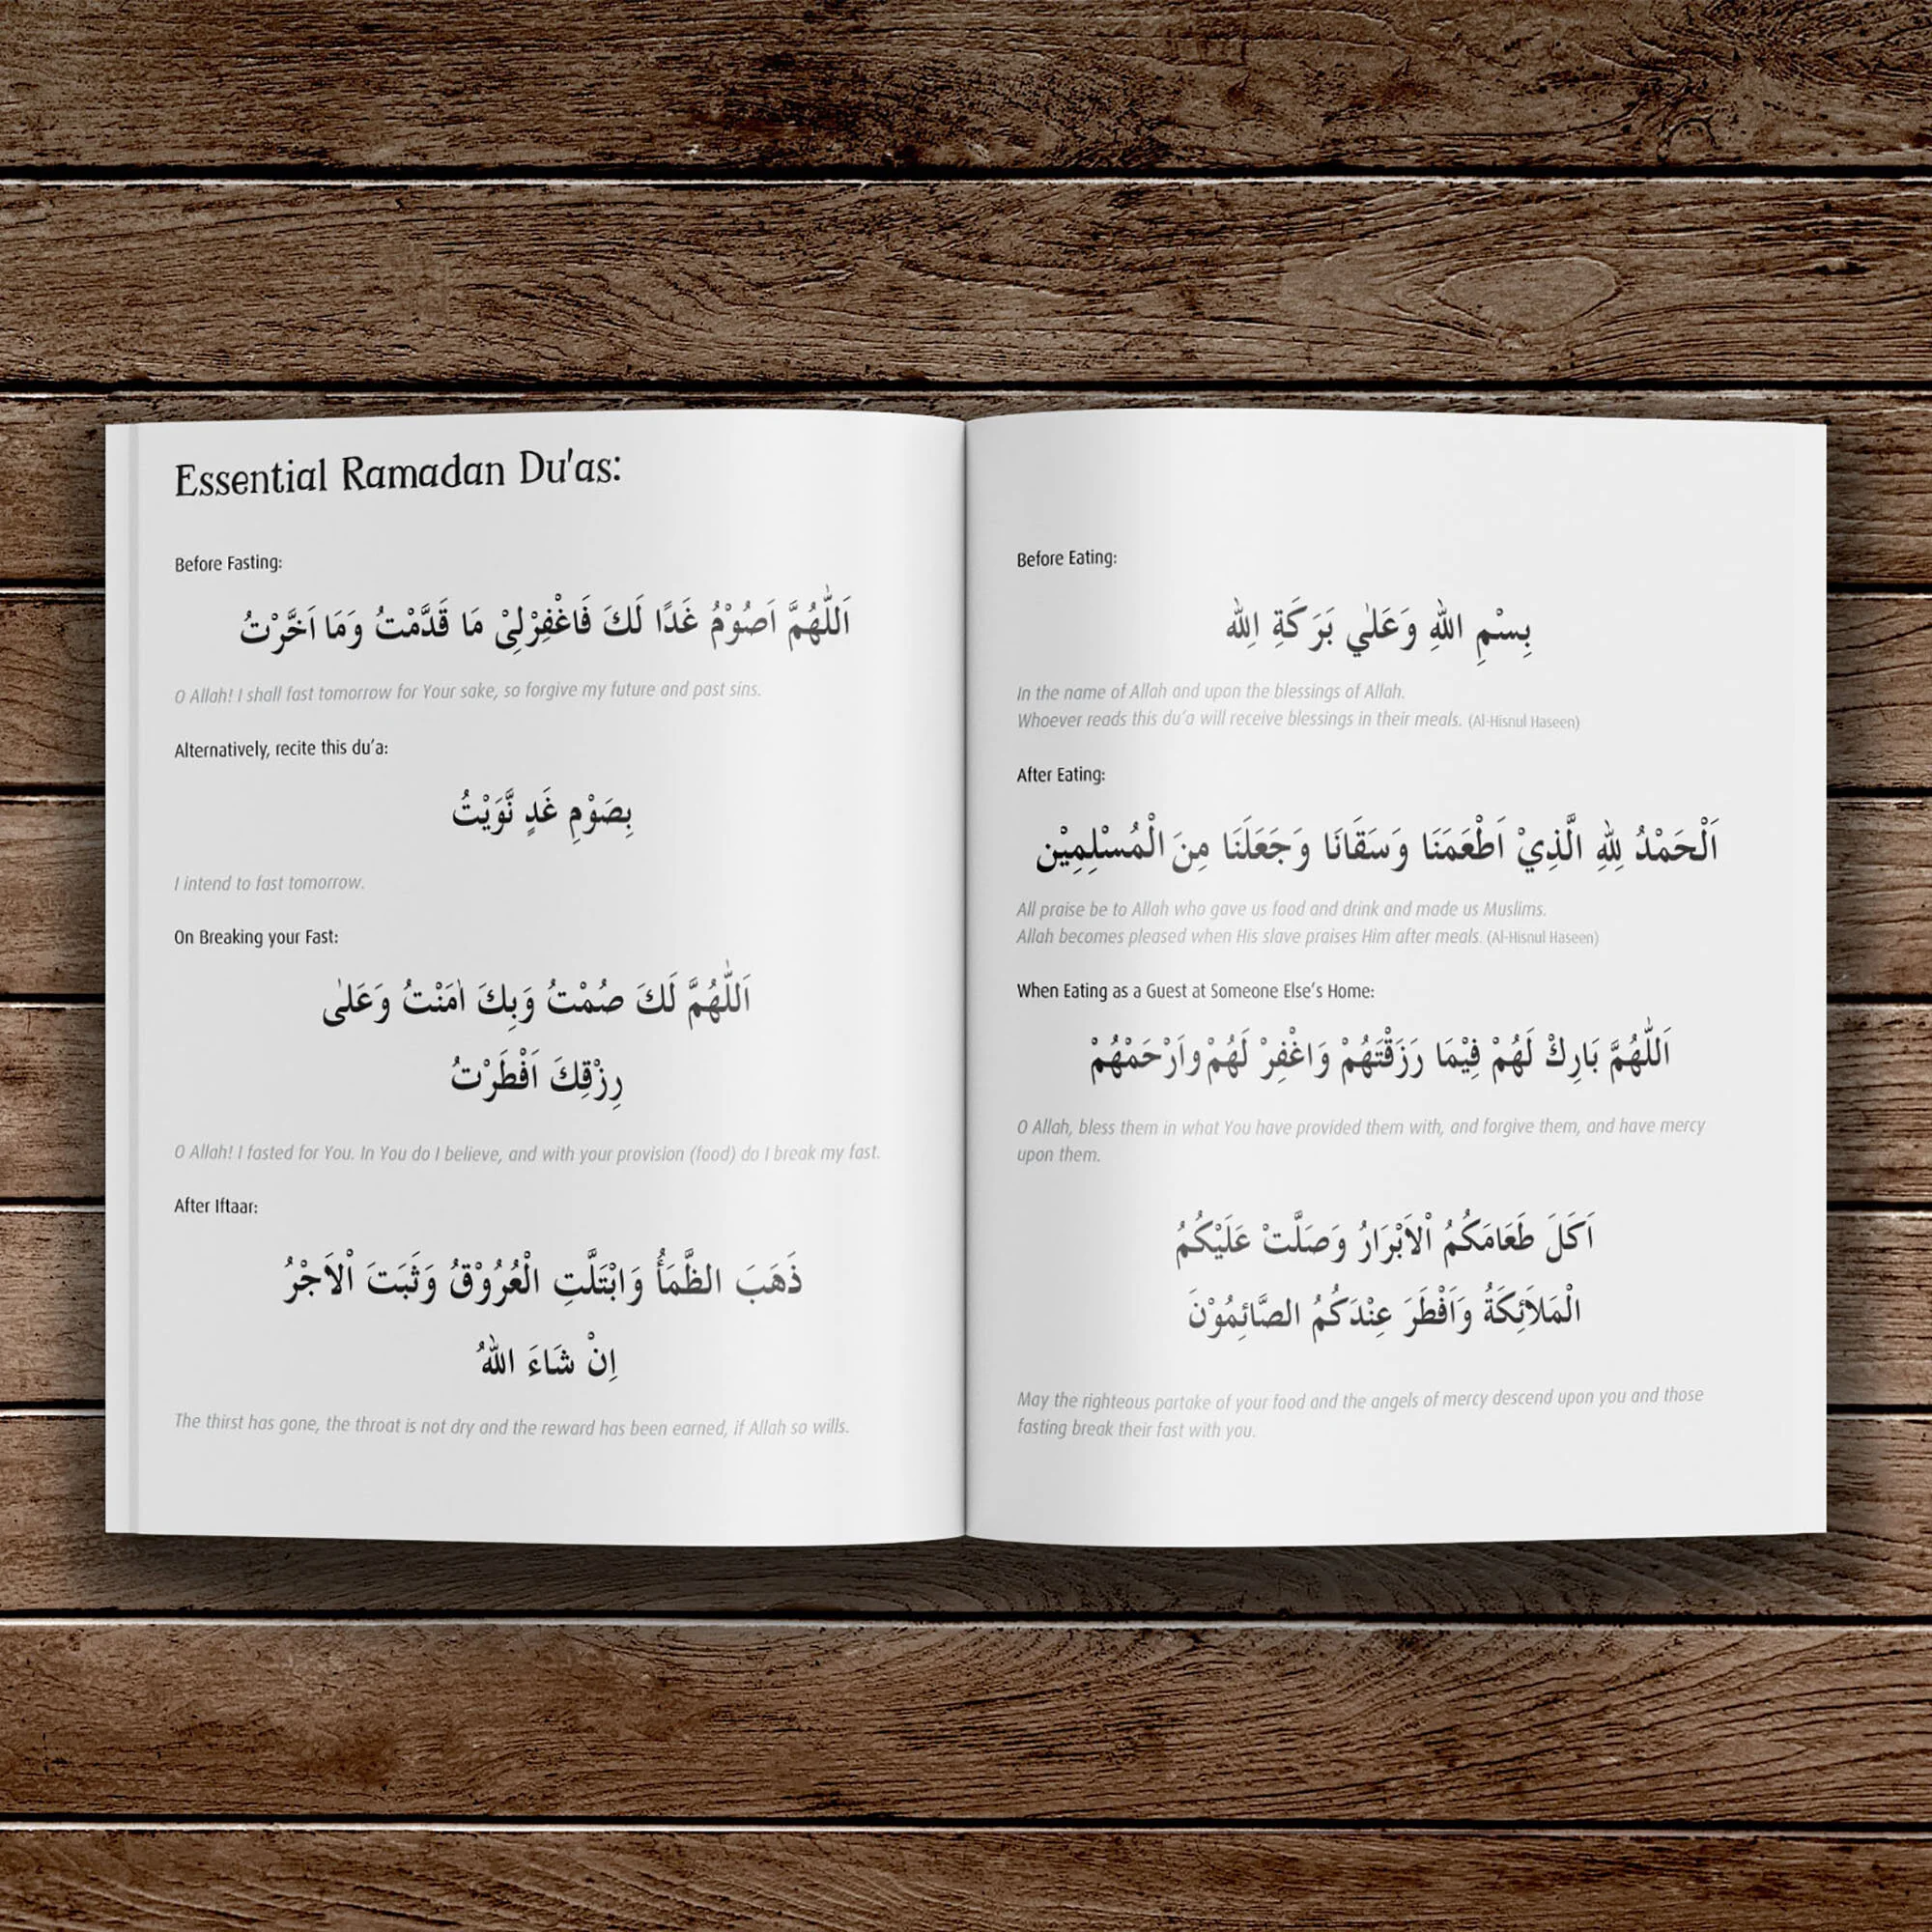 Essential Ramadan Du'as:
Before Fasting:
اَللّٰهُمَّ اَصُوْمُ غَدًا لَكَ فَاغْفِرْلِىْ مَا قَدَّمْتُ وَمَا اَخَّرْتُ
O Allah! I shall fast tomorrow for Your sake, so forgive my future and past sins.
Alternatively, recite this du’a:
بِصَوْمِ غَدٍ نَّوَيْتُ
I intend to fast tomorrow.
On Breaking your Fast:
اَللّٰهُمَّ لَكَ صُمْتُ وَبِكَ اٰمَنْتُ وَعَلٰى
رِزْقِكَ اَفْطَرْتُ
O Allah! I fasted for You. In You do I believe, and with your provision (food) do I break my fast.
After Iftaar:
ذَهَبَ الظَّمَأُ وَابْتَلَّتِ الْعُرُوْقُ وَثَبَتَ اْلاَجْرُ
اِنْ شَاءَ اللهُ
The thirst has gone, the throat is not dry and the reward has been earned, if Allah so wills.
Before Eating:
بِسْمِ اللهِ وَعَلٰي بَرَكَةِ اللهِ
In the name of Allah and upon the blessings of Allah.
Whoever reads this du’a will receive blessings in their meals. (Al-Hisnul Haseen)
After Eating:
اَلْحَمْدُ لِلهِ الَّذِيْ اَطْعَمَنَا وَسَقَانَا وَجَعَلَنَا مِنَ الْمُسْلِمِيْن
All praise be to Allah who gave us food and drink and made us Muslims.
Allah becomes pleased when His slave praises Him after meals. (Al-Hisnul Haseen)
When Eating as a Guest at Someone Else’s Home:
اَللّٰهُمَّ بَارِكْ لَهُمْ فِيْمَا رَزَقْتَهُمْ وَاغْفِرْ لَهُمْ وَارْحَمْهُمْ
O Allah, bless them in what You have provided them with, and forgive them, and have mercy
upon them.
اَكَلَ طَعَامَكُمُ اْلاَبْرَارُ وَصَلَّتْ عَلَيْكُمُ
الْمَلاَئِكَةُ وَاَفْطَرَ عِنْدَكُمُ الصَّائِمُوْنَ
May the righteous partake of your food and the angels of mercy descend upon you and those
fasting break their fast with you.